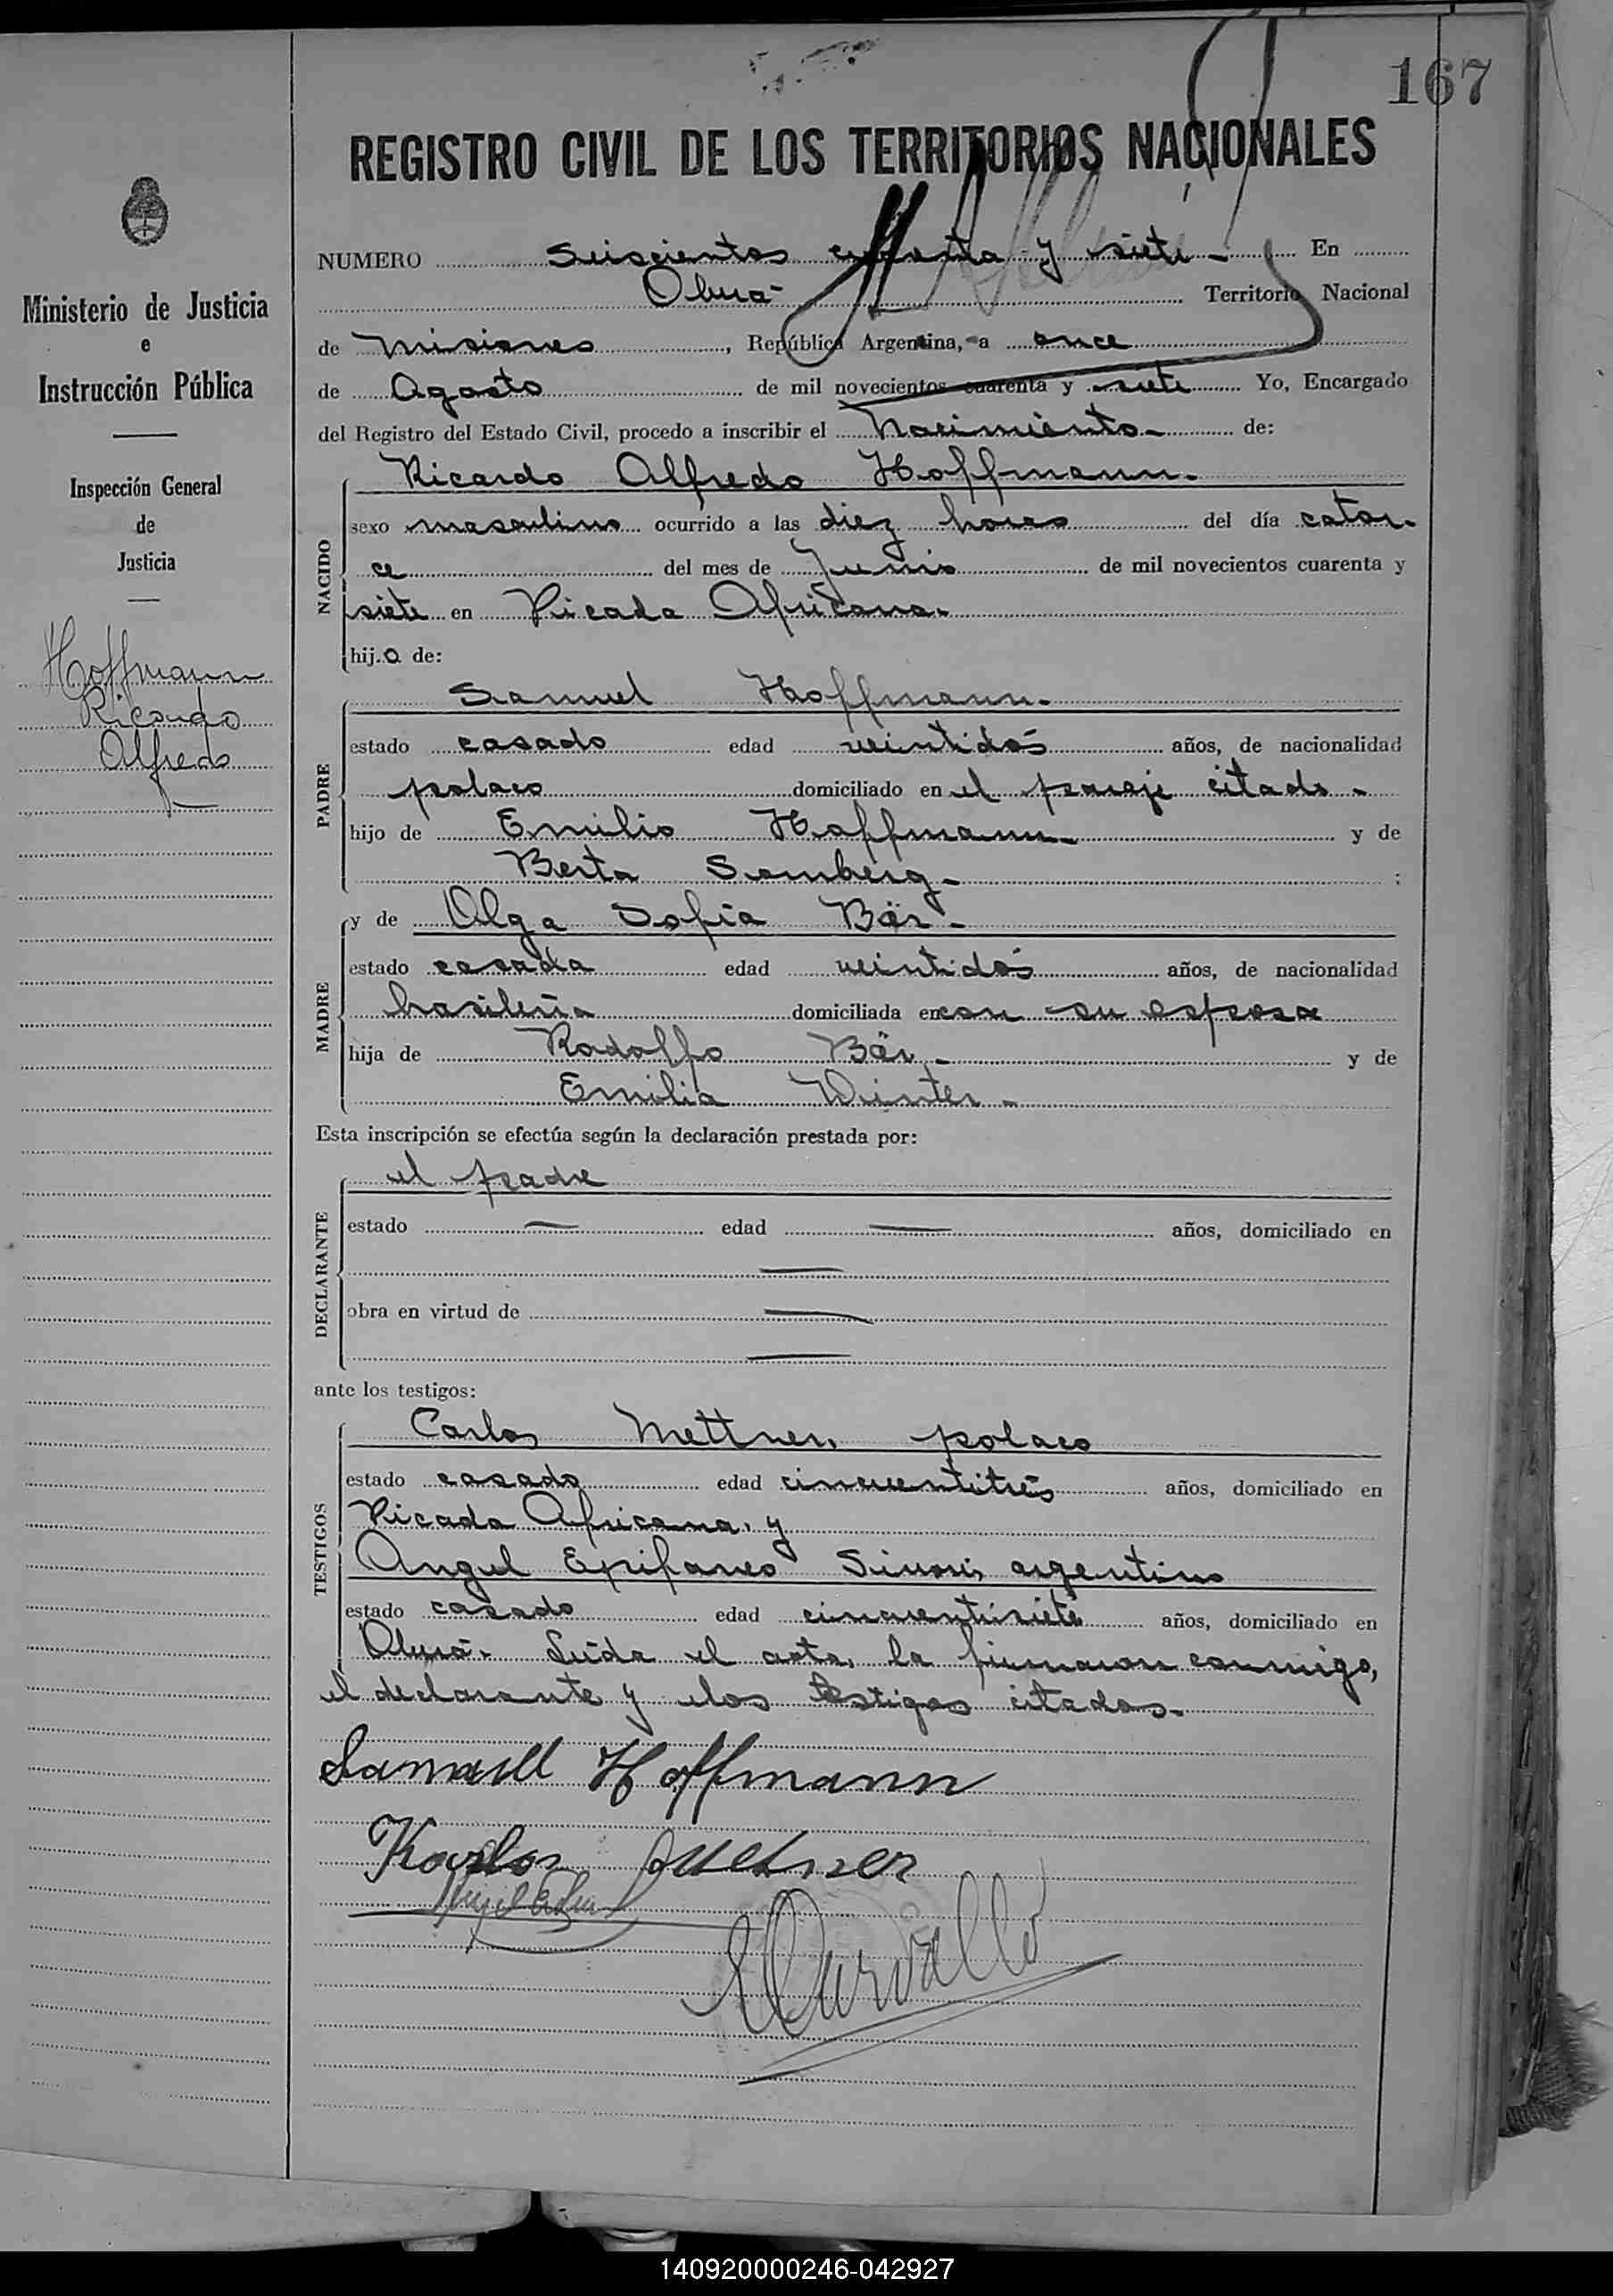 167
REGISTRO CIVIL DE LOS TERRITORIOS NACIONALES
Ministerio de Justicia
e
Instrucción Pública
Inspección General
de
Justicia
Hoffmann
Ricardo
Alfredo
NUMERO Seiscientos y siete - En
Oberá - Territorio Nacional
de Misiones, República Argentina, a once
de Agosto de mil novecientos cuarenta y siete Yo, Encargado
del Registro del Estado Civil, procedo a inscribir el Nacimiento - de:
NACIDO
Ricardo Alfredo Hoffmann.
sexo masculino ocurrido a las diez horas del día cator-
ce del mes de Junio de mil novecientos cuarenta y
siete en Picada Africana.
hijo de:
PADRE
Samuel Hoffmann.
estado casado edad veintidós años, de nacionalidad
polaco domiciliado en el paraje citado -
hijo de Emilio Hoffmann - y de
Berta -
MADRE
y de Olga Sofía Bär -
estado casada edad veintidós años, de nacionalidad
brasileña domiciliada en con su esposo
hija de Rodolfo Bär - y de
Emilia Winter -
Esta inscripción se efectúa según la declaración prestada por:
DECLARANTE
el padre
estado — edad — años, domiciliado en
—
obra en virtud de —
—
ante los testigos:
TESTIGOS
Carlos polaco
estado casado edad cincuentitrés años, domiciliado en
Picada Africana, y
Angel Epifaneo argentino
estado casado edad cincuentisiete años, domiciliado en
Oberá. Leída el acta, la firmaron conmigo,
el declarante y los testigos citados.-
Samuell Hoffmann
140920000246-042927